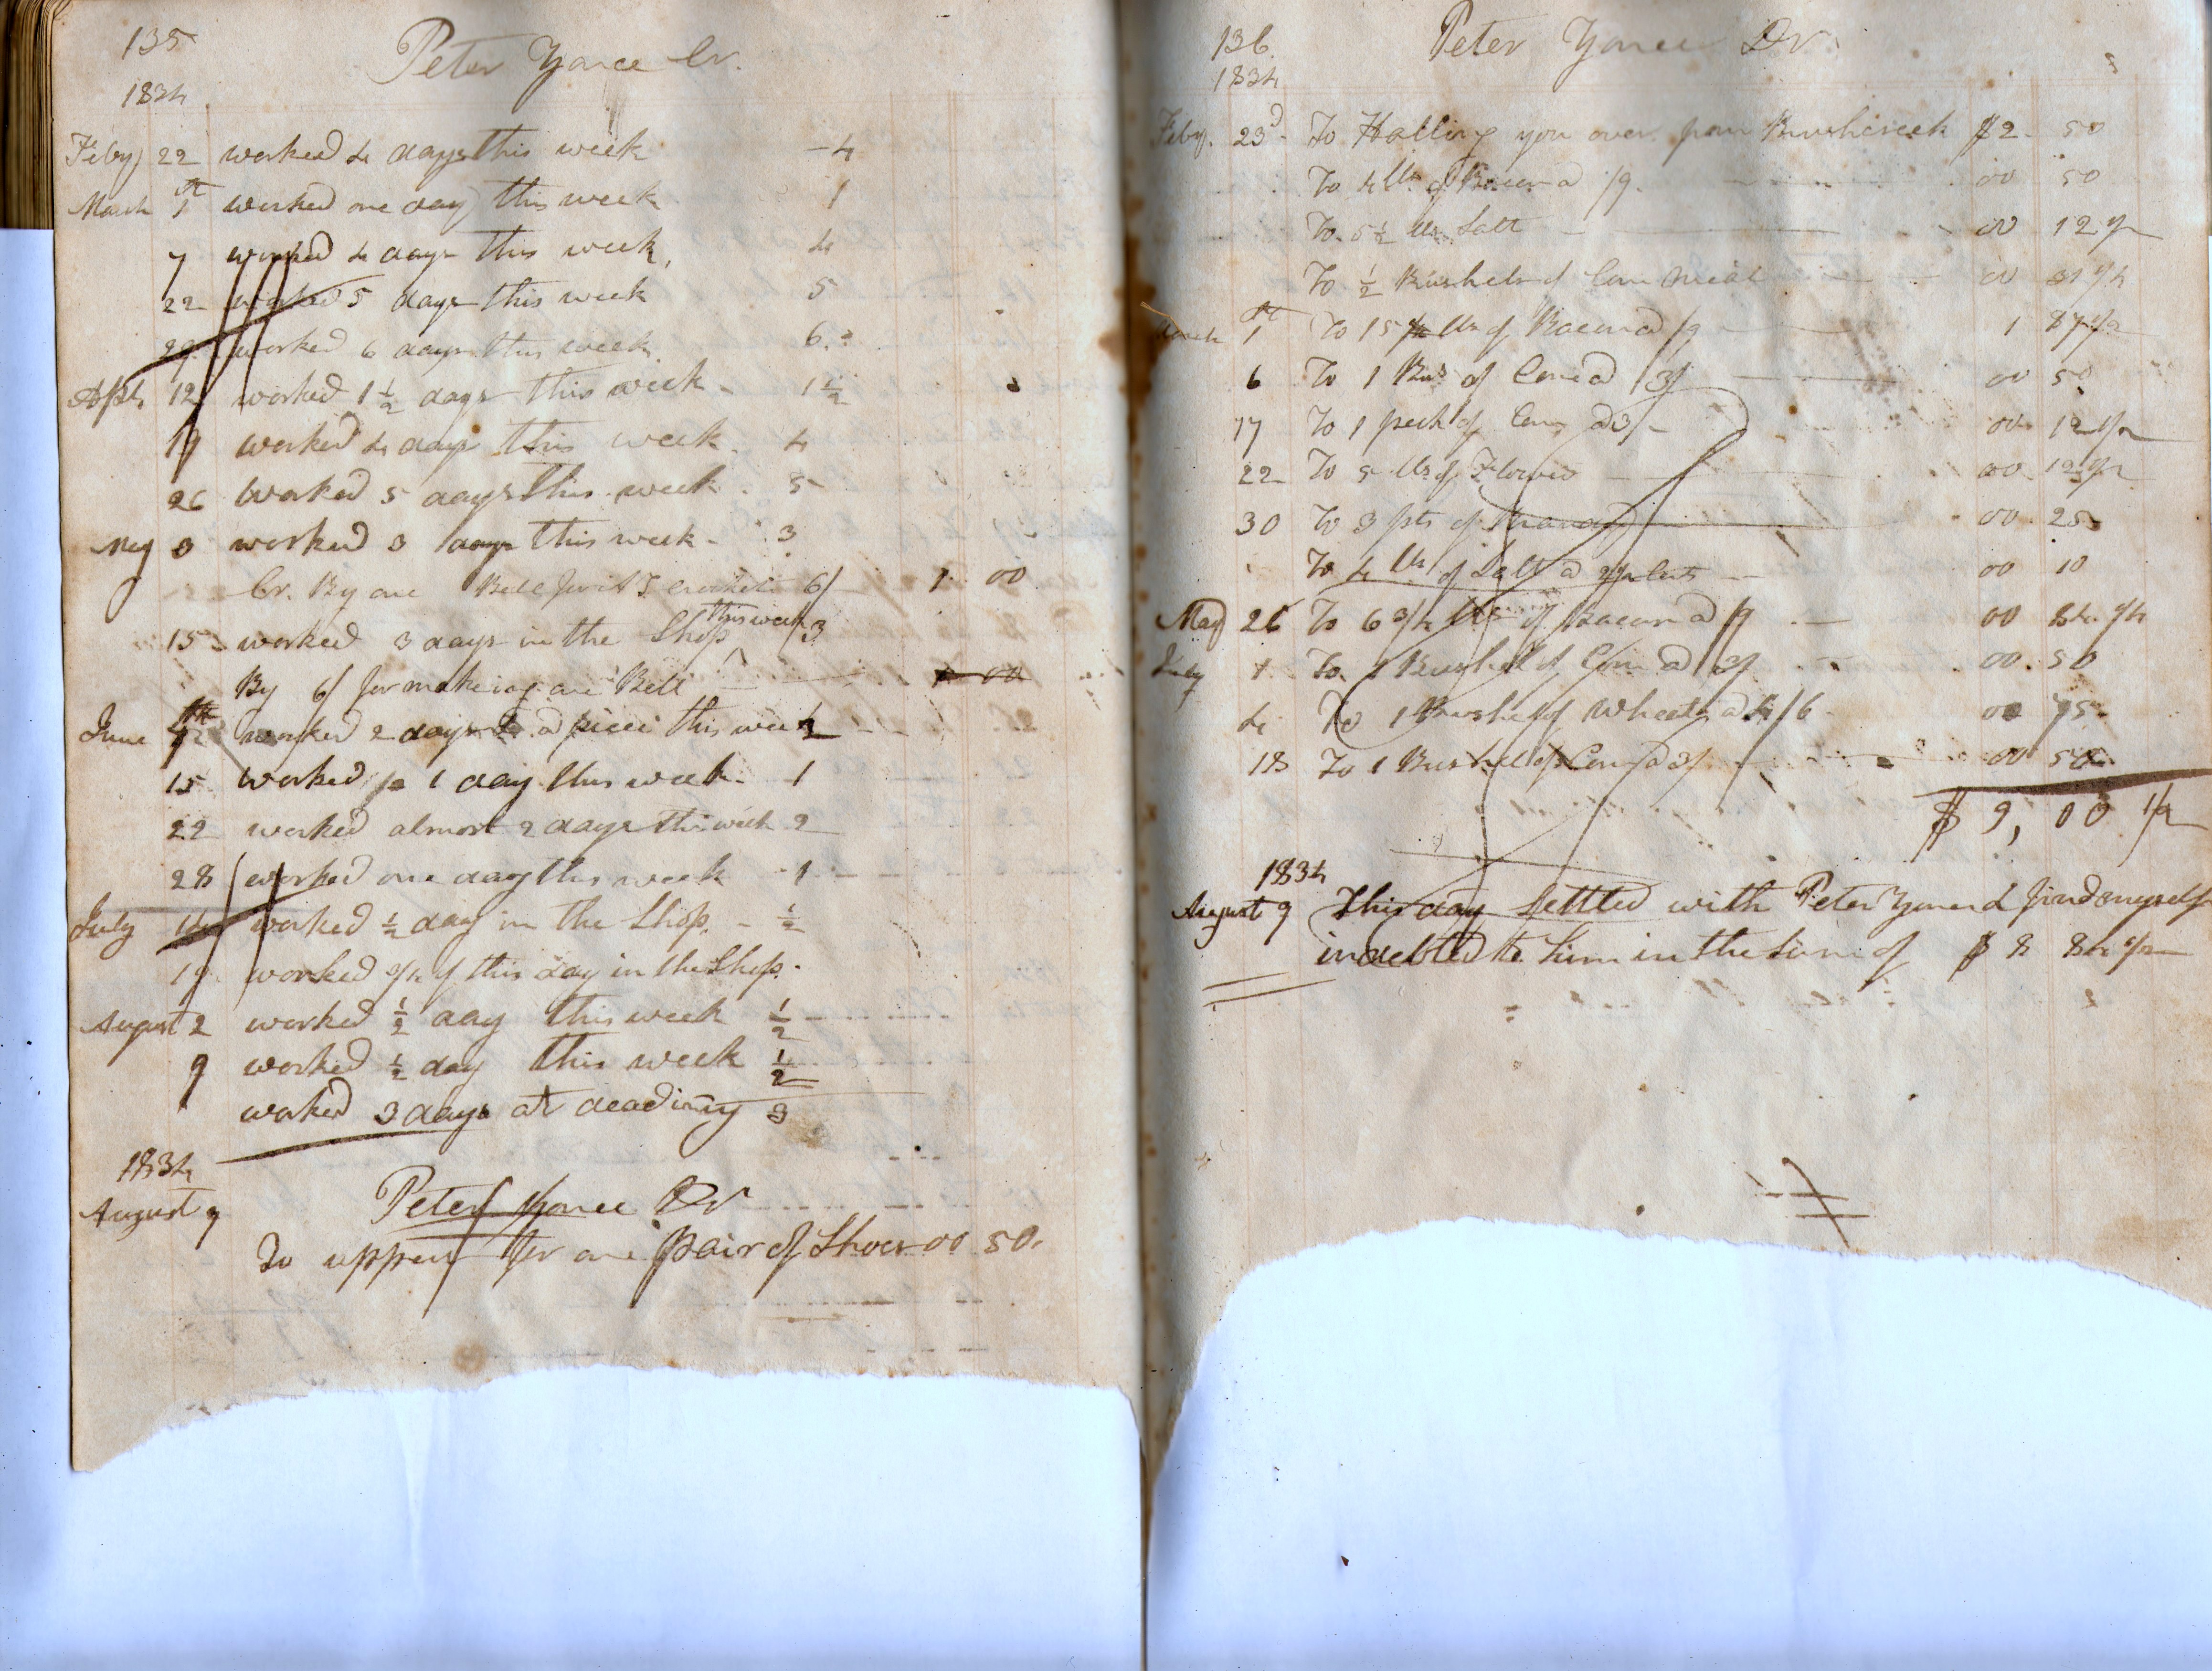 135
Peter Yonce Cr.
1834
Feby 22 worked 4 days this week - 4
March 1st worked one day this week 1
7 worked 4 days this week, 4
22 worked 5 days this week 5
29 worked 6 days this week. 6
Apl. 12 worked 1 1/2 days this week - 1 1/2
19 worked 4 days this week. 4
26 worked 5 days this week. 5
May 3 worked 3 days this week - 3
Cr. By one Bell for 6/ 1 00
15 worked 3 days in the Shop this week 3
By 6/ for making one Bell 1 00
June worked 2 days a piece this week 2
15 worked 1 day this week - 1
22 worked almost 2 days this week 2
28 worked one day this week - 1
July worked 1/2 day in the Shop. - 1/2
19 worked 3/4 of this day in the Shop.
August 2 worked 1/2 day this week 1/2
9 worked 1/2 day this week 1/2
worked 3 days at deadning 3
1834
August 9 Peter Yonce Dr
To uppers for one pair of Shoes 00 50.
136.
Peter Yonce Dr.
1834
Feby. 23d To Halling you over from Brushcreek $2 - 50
To 4 lbs of Bacon a /9. 00 50
To 5 1/2 lbs Salt 00 12 1/2
To 1/2 Bushel of Corn Meal 00 31 1/4
March 1st To 15 lbs of Bacon a /9 1 87 1/2
6 To 1 Bus of Corn a 3/ 00 50
17 To 1 peck of Corn a 3/ 00 12 1/2
22 To 5 lbs of Flower 00 12 1/2
30 To 3 pts of 00 25
To 4 lbs of Salt a 2 1/2 Cents 00 10
May 26 To 6 3/4 lbs of Bacon a /9 00 84 1/4
July 1 To 1 Bushel of Corn a 3/ 00. 50
4 To 1 Bushel of Wheat a 4/6 00 75
18 To 1 Bushel of Corn a 3/ 00 50
$ 9, 00 1/2
1834
August 9 This day Settled with Peter Yonce & find myself
indebted to him in the Sum of $ 8 84 1/2